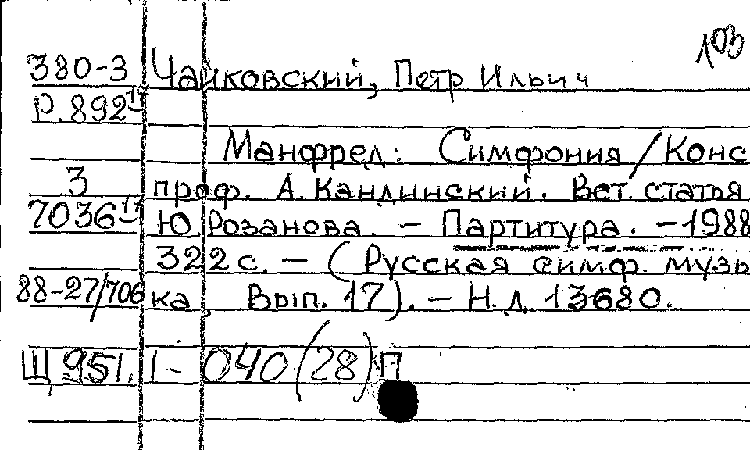 103
380-3 Чайковский, Петр Ильич
Р.892¹⁷
Манфред: Симфония / Конс
3 проф. А. Кандинский. Вст. статья
7036¹⁷ Ю Розанова. - Партитура. - 1988
322 с. - (Русская симф. музы
88-27/706 ка Вып. 17). - Н. д. 13680.
Щ 951.1-040(28)П